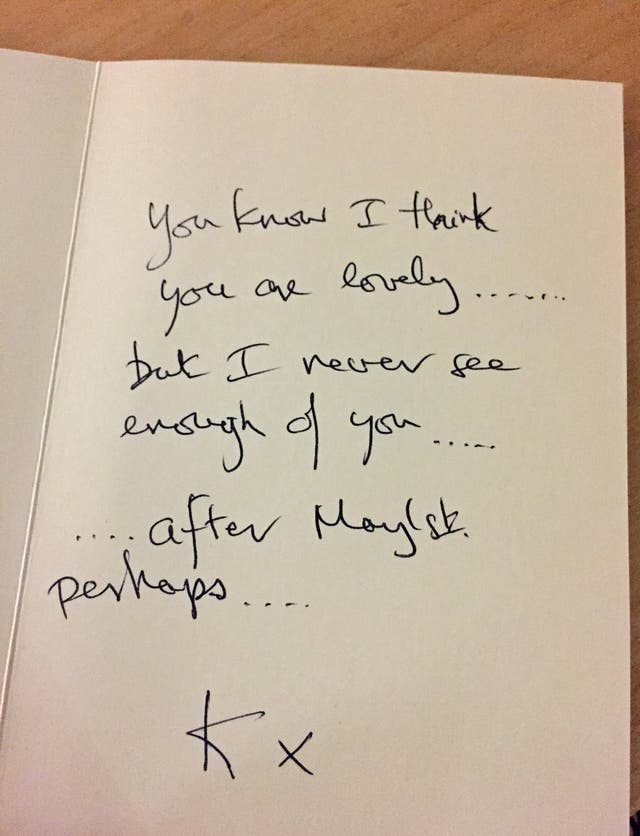 You know I think
you are lovely.......
but I never see
enough of you.....
....after May 1st.
perhaps....
K x